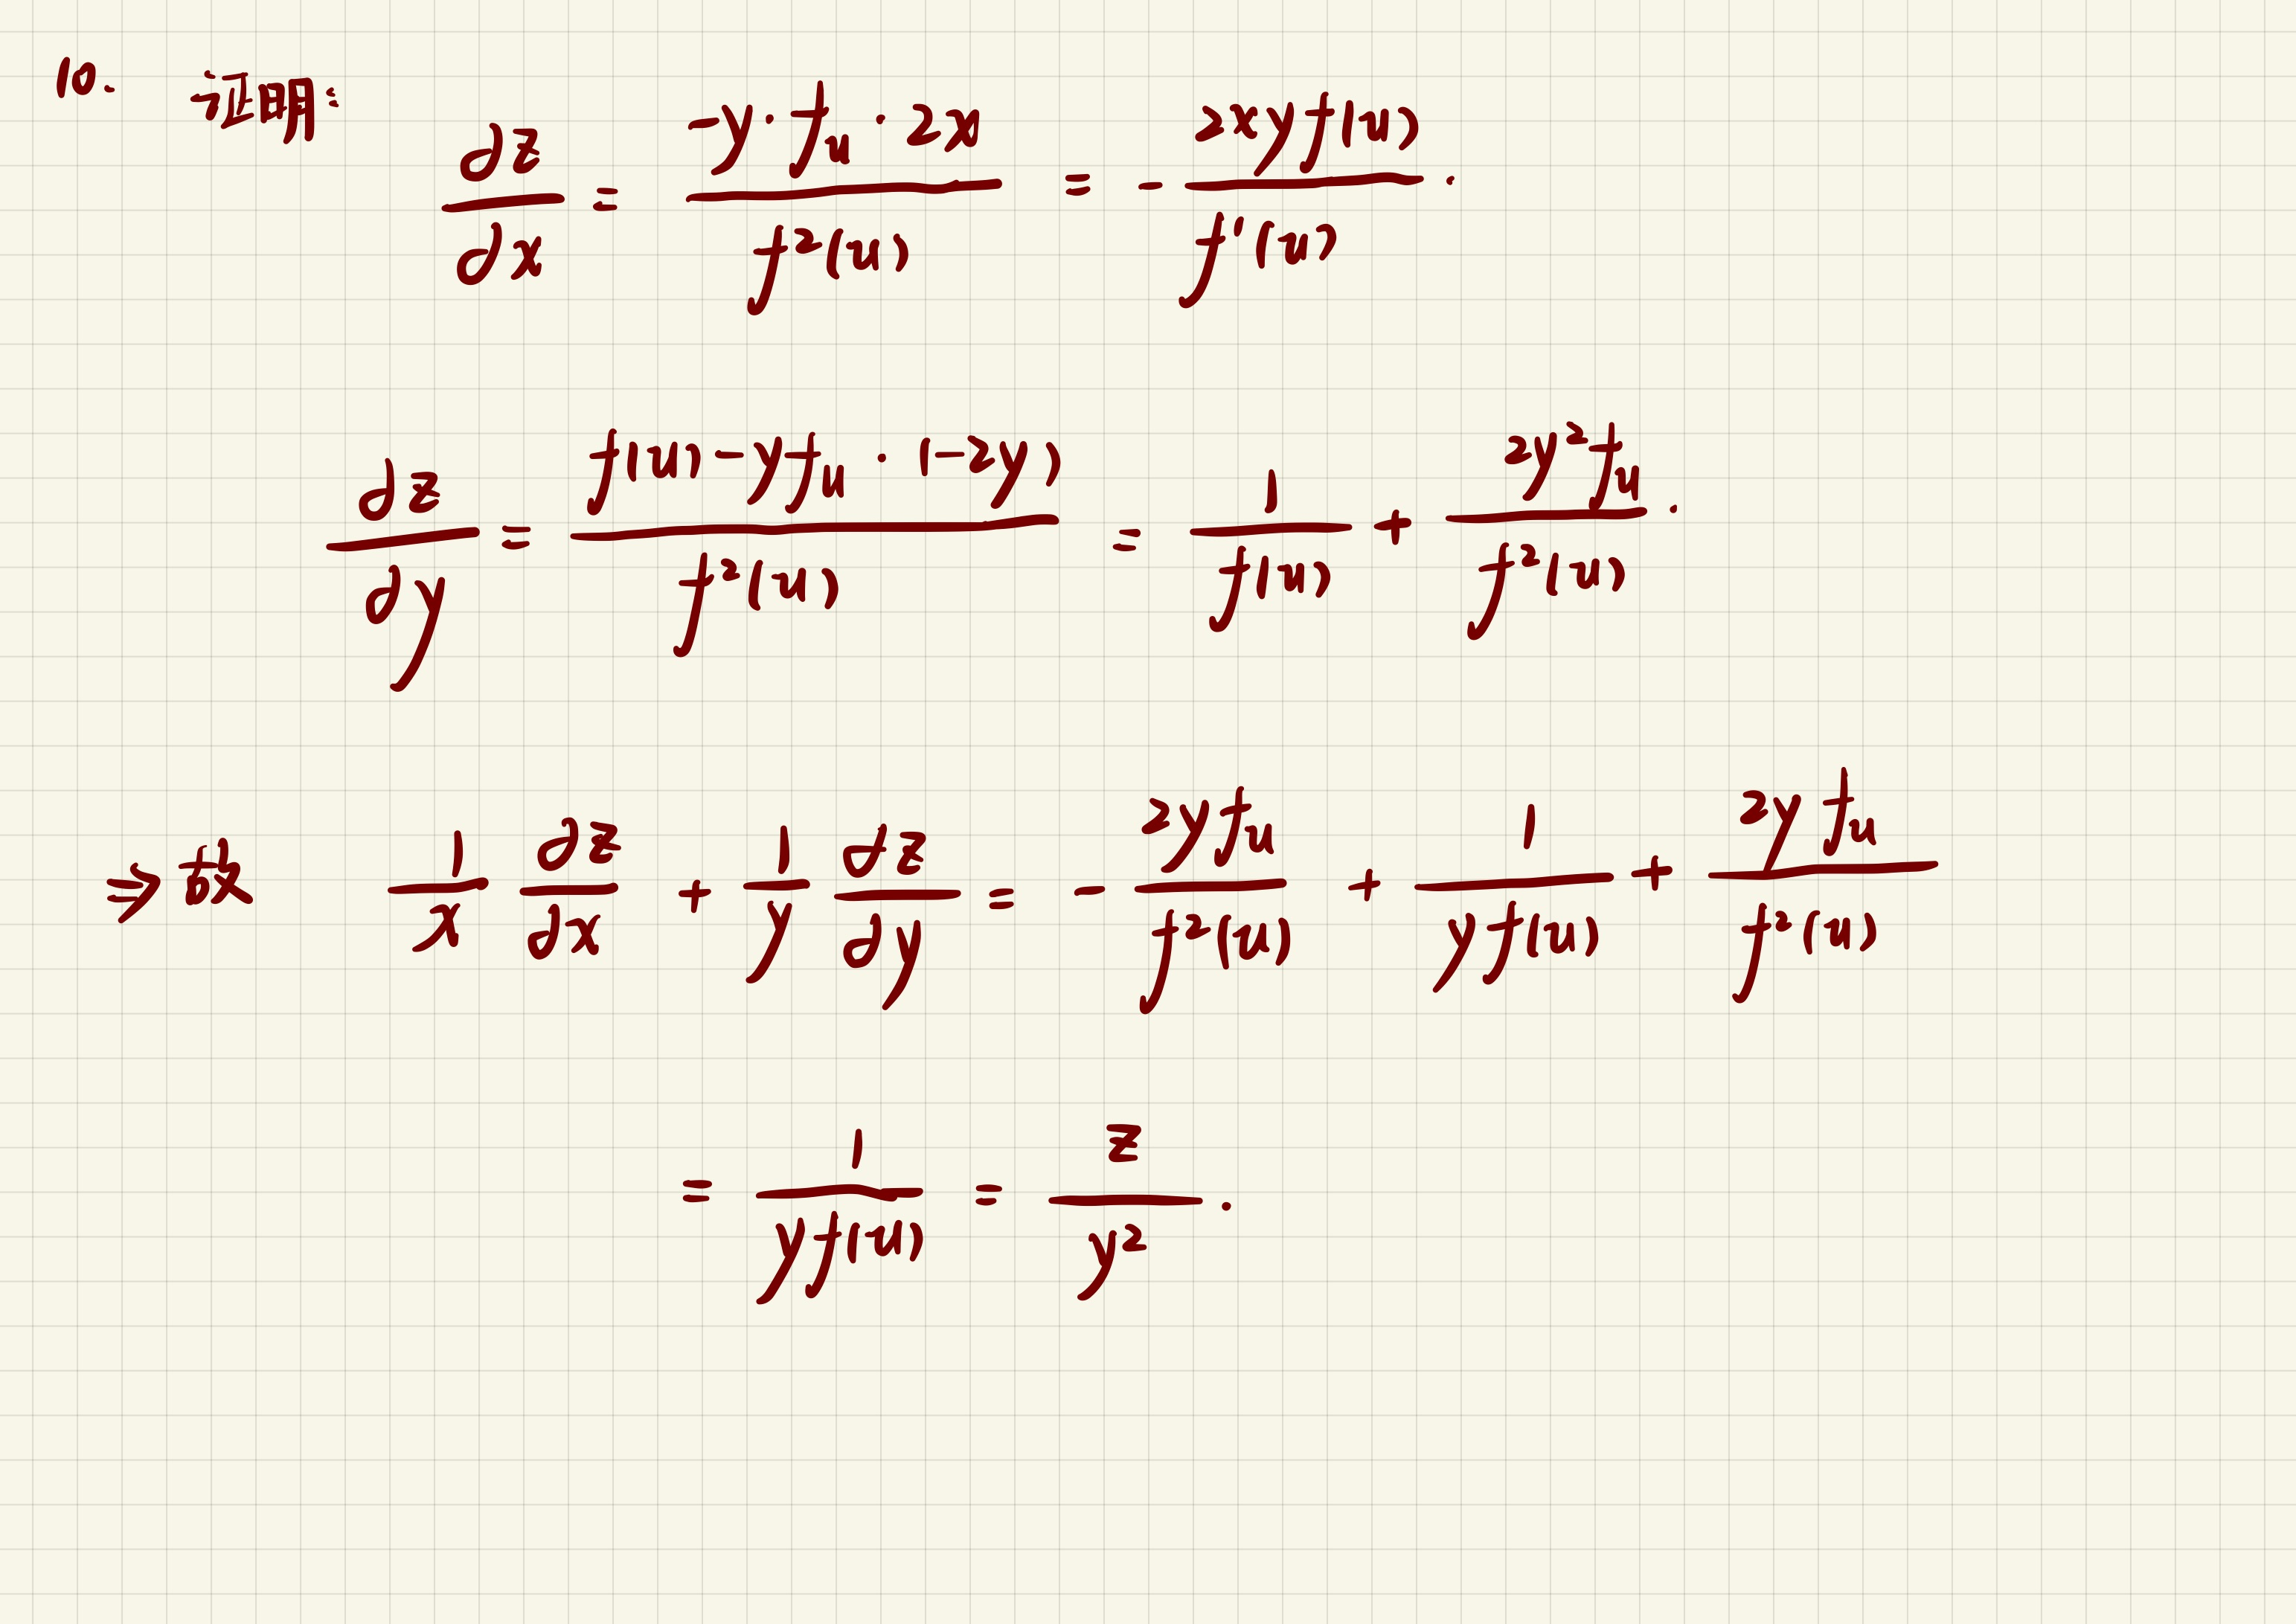 10. 证明:
∂z/∂x = (-y·f_u·2x)/(f²(u)) = -(2xyf(u))/(f'(u)).
∂z/∂y = (f(u)-yf_u·(-2y))/(f²(u)) = 1/(f(u)) + (2y²f_u)/(f²(u)).
⇒ 故 1/x ∂z/∂x + 1/y ∂z/∂y = -(2yf_u)/(f²(u)) + 1/(yf(u)) + (2yf_u)/(f²(u))
= 1/(yf(u)) = z/y².